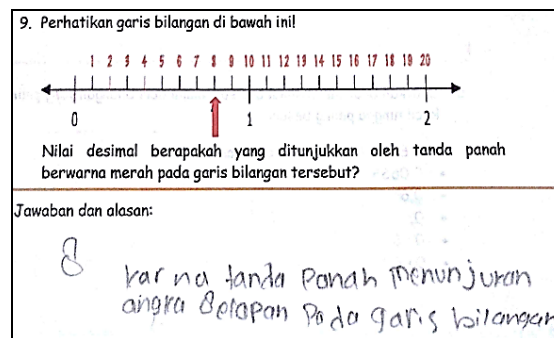 9. Perhatikan garis bilangan di bawah ini!
1 2 3 4 5 6 7 8 9 10 11 12 13 14 15 16 17 18 19 20
0 1 2
Nilai desimal berapakah yang ditunjukkan oleh tanda panah
berwarna merah pada garis bilangan tersebut?
Jawaban dan alasan:
8
kar na tanda Panah menunjukan
angka delapan Pada garis bilangan